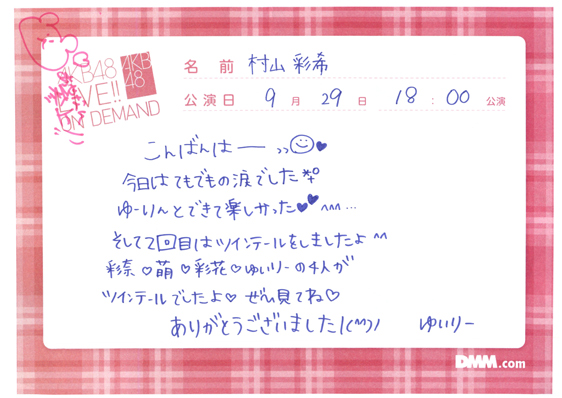 AKB48
LIVE!!
ON DEMAND
AKB
48
名前 村山彩希
公演日 9月29日 18:00公演
こんばんはー ››☺♥
今日はてもでもの涙でした
ゆーりんとできて楽しかった♥♥ ^^^ …
そして2回目はツインテールをしましたよ ^^
彩奈♡萌♡彩花♡ゆいりーの4人が
ツインテールでしたよ♡ ぜひ見てね♡
ありがとうございました\(^^)/ ゆいりー
DMM.com